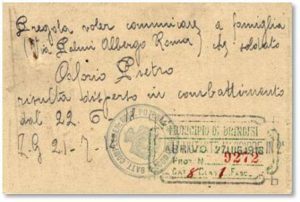 Pregola voler comunicare a famiglia
(Via Palmi Albergo Roma) che soldato
Osborio Pietro
risulta disperso in combattimento
dal 22
Z.G. 21-7
MUNICIPIO DI BRINDISI
ARRIVO 27 LUG 1916
9272